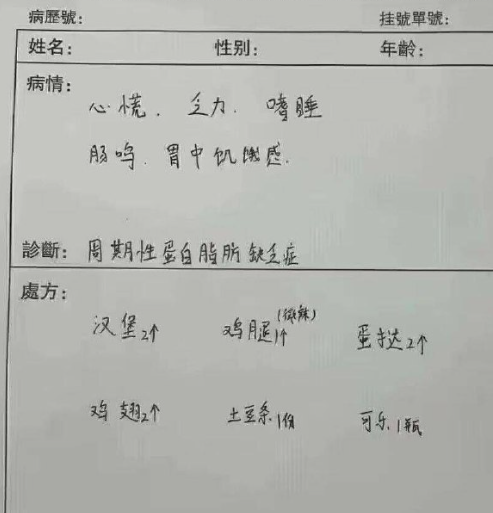 病歷號：
挂號單號：
姓名： 性别： 年齡：
病情：
心慌．乏力．嗜睡
肠鸣．胃中饥饿感．
診斷： 周期性蛋白脂肪缺乏症
處方：
(微辣)
汉堡2个 鸡腿1个 蛋挞2个
鸡翅2个 土豆条1份 可乐1瓶